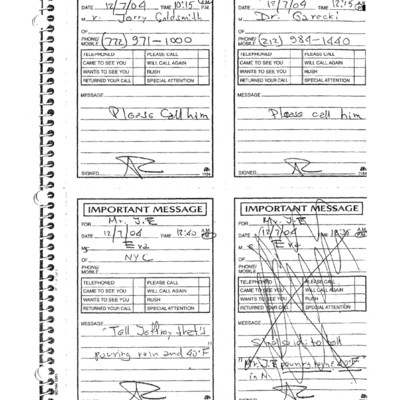 DATE 12/7/04 TIME 10:15 P.M.
Mr. Jerry Goldsmith
OF
PHONE/
MOBILE (772) 971-1000
TELEPHONED PLEASE CALL
CAME TO SEE YOU WILL CALL AGAIN
WANTS TO SEE YOU RUSH
RETURNED YOUR CALL SPECIAL ATTENTION
MESSAGE
Please call him
SIGNED
1184
DATE 12/7/04 TIME 12:15
Dr. Gareck
OF
PHONE/
MOBILE (212) 984-1440
TELEPHONED PLEASE CALL
CAME TO SEE YOU WILL CALL AGAIN
WANTS TO SEE YOU RUSH
RETURNED YOUR CALL SPECIAL ATTENTION
MESSAGE
Please call him
SIGNED
1184
IMPORTANT MESSAGE
FOR Mr. J.E
DATE 12/7/04 TIME 12:40
M
OF NYC
PHONE/
MOBILE
TELEPHONED PLEASE CALL
CAME TO SEE YOU WILL CALL AGAIN
WANTS TO SEE YOU RUSH
RETURNED YOUR CALL SPECIAL ATTENTION
MESSAGE
"Tell Jeffrey, that's
pouring rain and 40°F"
SIGNED
1184
IMPORTANT MESSAGE
FOR Mr. J.E
DATE 12/7/04 TIME
OF
PHONE/
MOBILE
TELEPHONED PLEASE CALL
CAME TO SEE YOU WILL CALL AGAIN
WANTS TO SEE YOU RUSH
RETURNED YOUR CALL SPECIAL ATTENTION
MESSAGE
to tell
"Mr. J.E 40°F
in N
SIGNED
1184